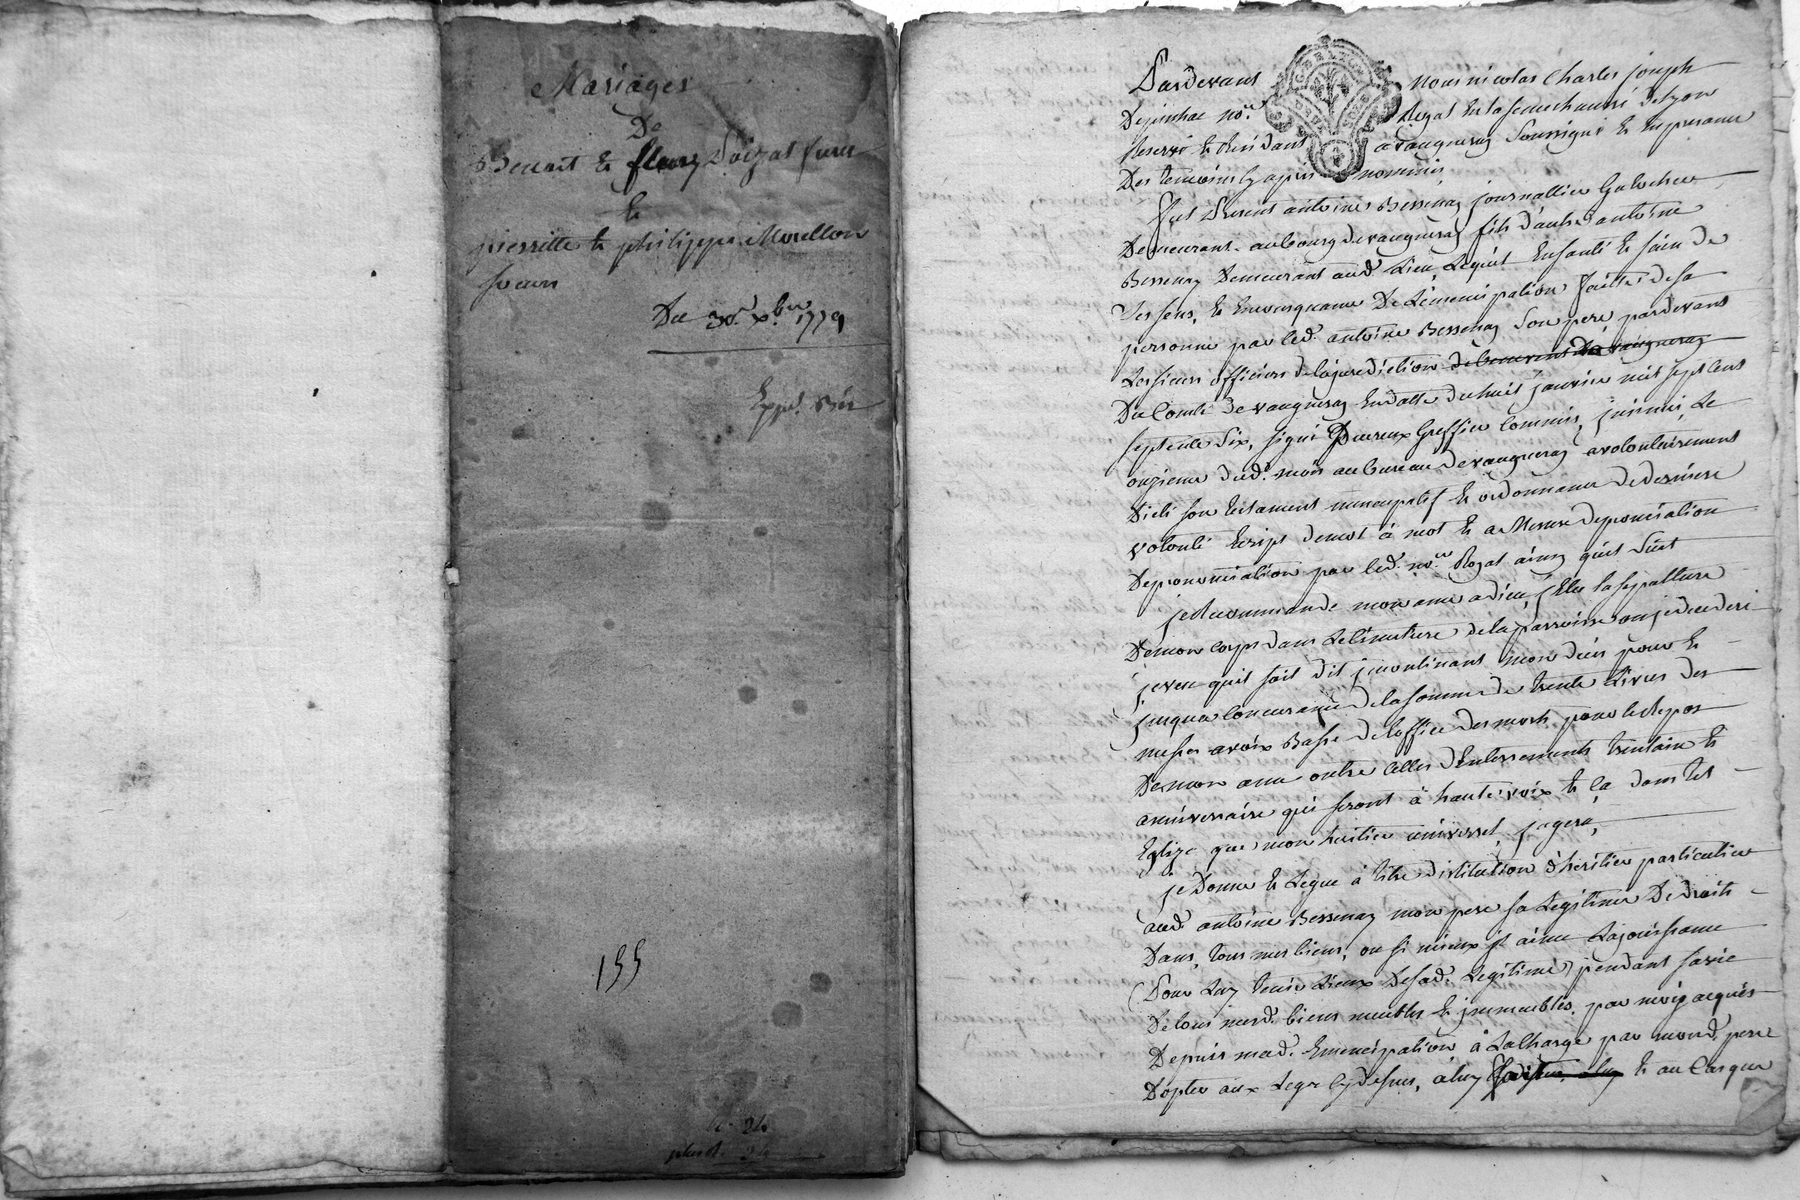 Mariages
De
Benoit & fleury Doizat freres
&
pierrette & philippe Moullon
soeurs
Du 30.e xbre 1779
Expd. Bés
155
24
Pardevant nous nicolas Charles joseph
Depinhac no.re Royal En la senechaussée De lyon
Reservé & Residant a vaugneray soussigné & En presence
Des temoins Cy apres nommés
fut Present antoine Bessenay journallier Galocheur
Demeurant au bourg de vaugneray fils d'autre antoine
Bessenay Demeurant aud. Lieu, Lequel En santé & sain de
ses sens, & En consequence De L'emencipation faitte de sa
personne par led. antoine Bessenay son pere pardevant
Les sieurs officiers de la jurediction
Du Comté de vaugneray En datte du huit janvier mil sept Cent
septente Six, signé Greffier Commis, le
onzieme dud. mois au bureau de vaugneray a volontairement
Dicté son testament nuncupatif & ordonnance de derniere
volonté Ecript de mot à mot & a Mesure de prononciation
par led. no.re Royal ainsy quil Suit
je Recommande mon ame a dieu, j'Elis la sepulture
De mon corps dans Le Cimetiere de la parroisse ou je decederai
je veux quil soit dit jncontinant mon décès pour &
jusqua Concurance de la somme de trente Livres des
messes a voix Basse de l'office des morts pour le Repos
De mon ame outre Celles d'Enterrement, trentain &
anniversaire qui seront à haute voix & Ce dans Les
Eglize que mon heritier universel, jugera,
je Donne & Legue à titre d'institution d'héritier particulier
aud. antoine Bessenay mon pere sa Legitime De droit
Dans tous mes biens, ou si mieux il aime La jouissance
(Pour Luy tenir Lieux De sad. Legitime) pendant sa vie
De tous mesd. biens meubles & jmmeubles, par moy acquis
Depuis mad. Emencipation à La Charge par mond. pere
D'opter aux Legs Cy dessus, à luy & au Cas que